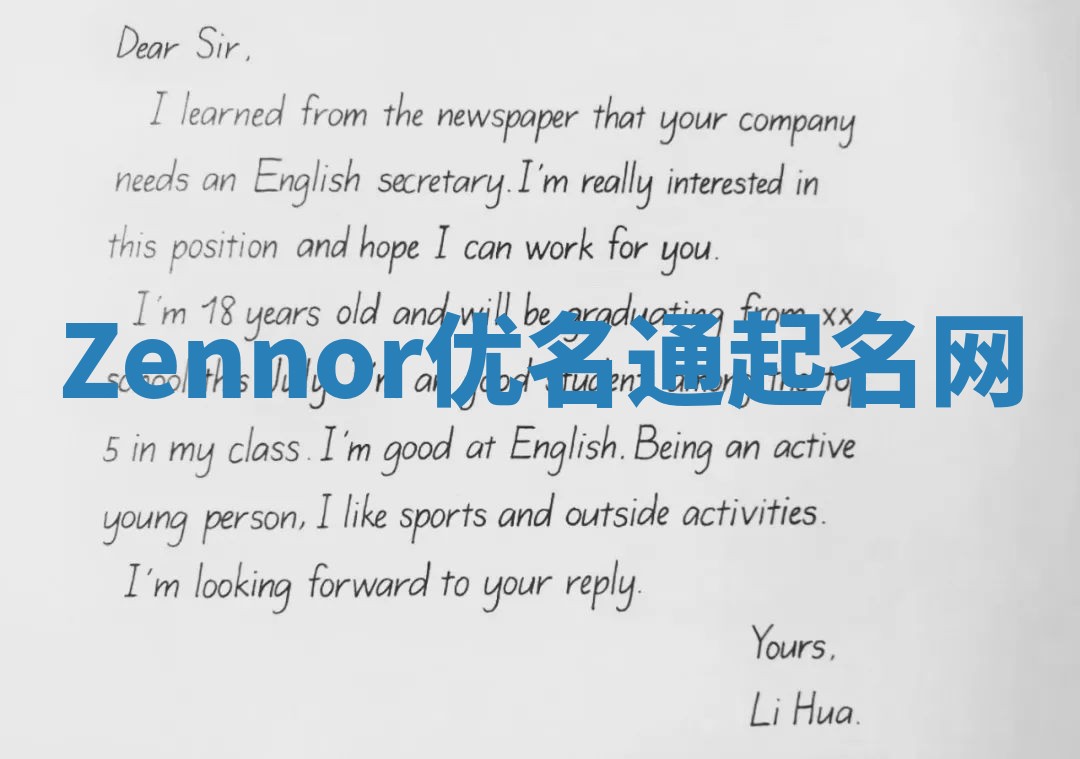 Dear Sir,
I learned from the newspaper that your company
needs an English secretary. I'm really interested in
this position and hope I can work for you.
I'm 18 years old and will be graduating from xx
Zennor优名通起名网
school this July. I'm a good student among the top
5 in my class. I'm good at English. Being an active
young person, I like sports and outside activities.
I'm looking forward to your reply.
Yours,
Li Hua.